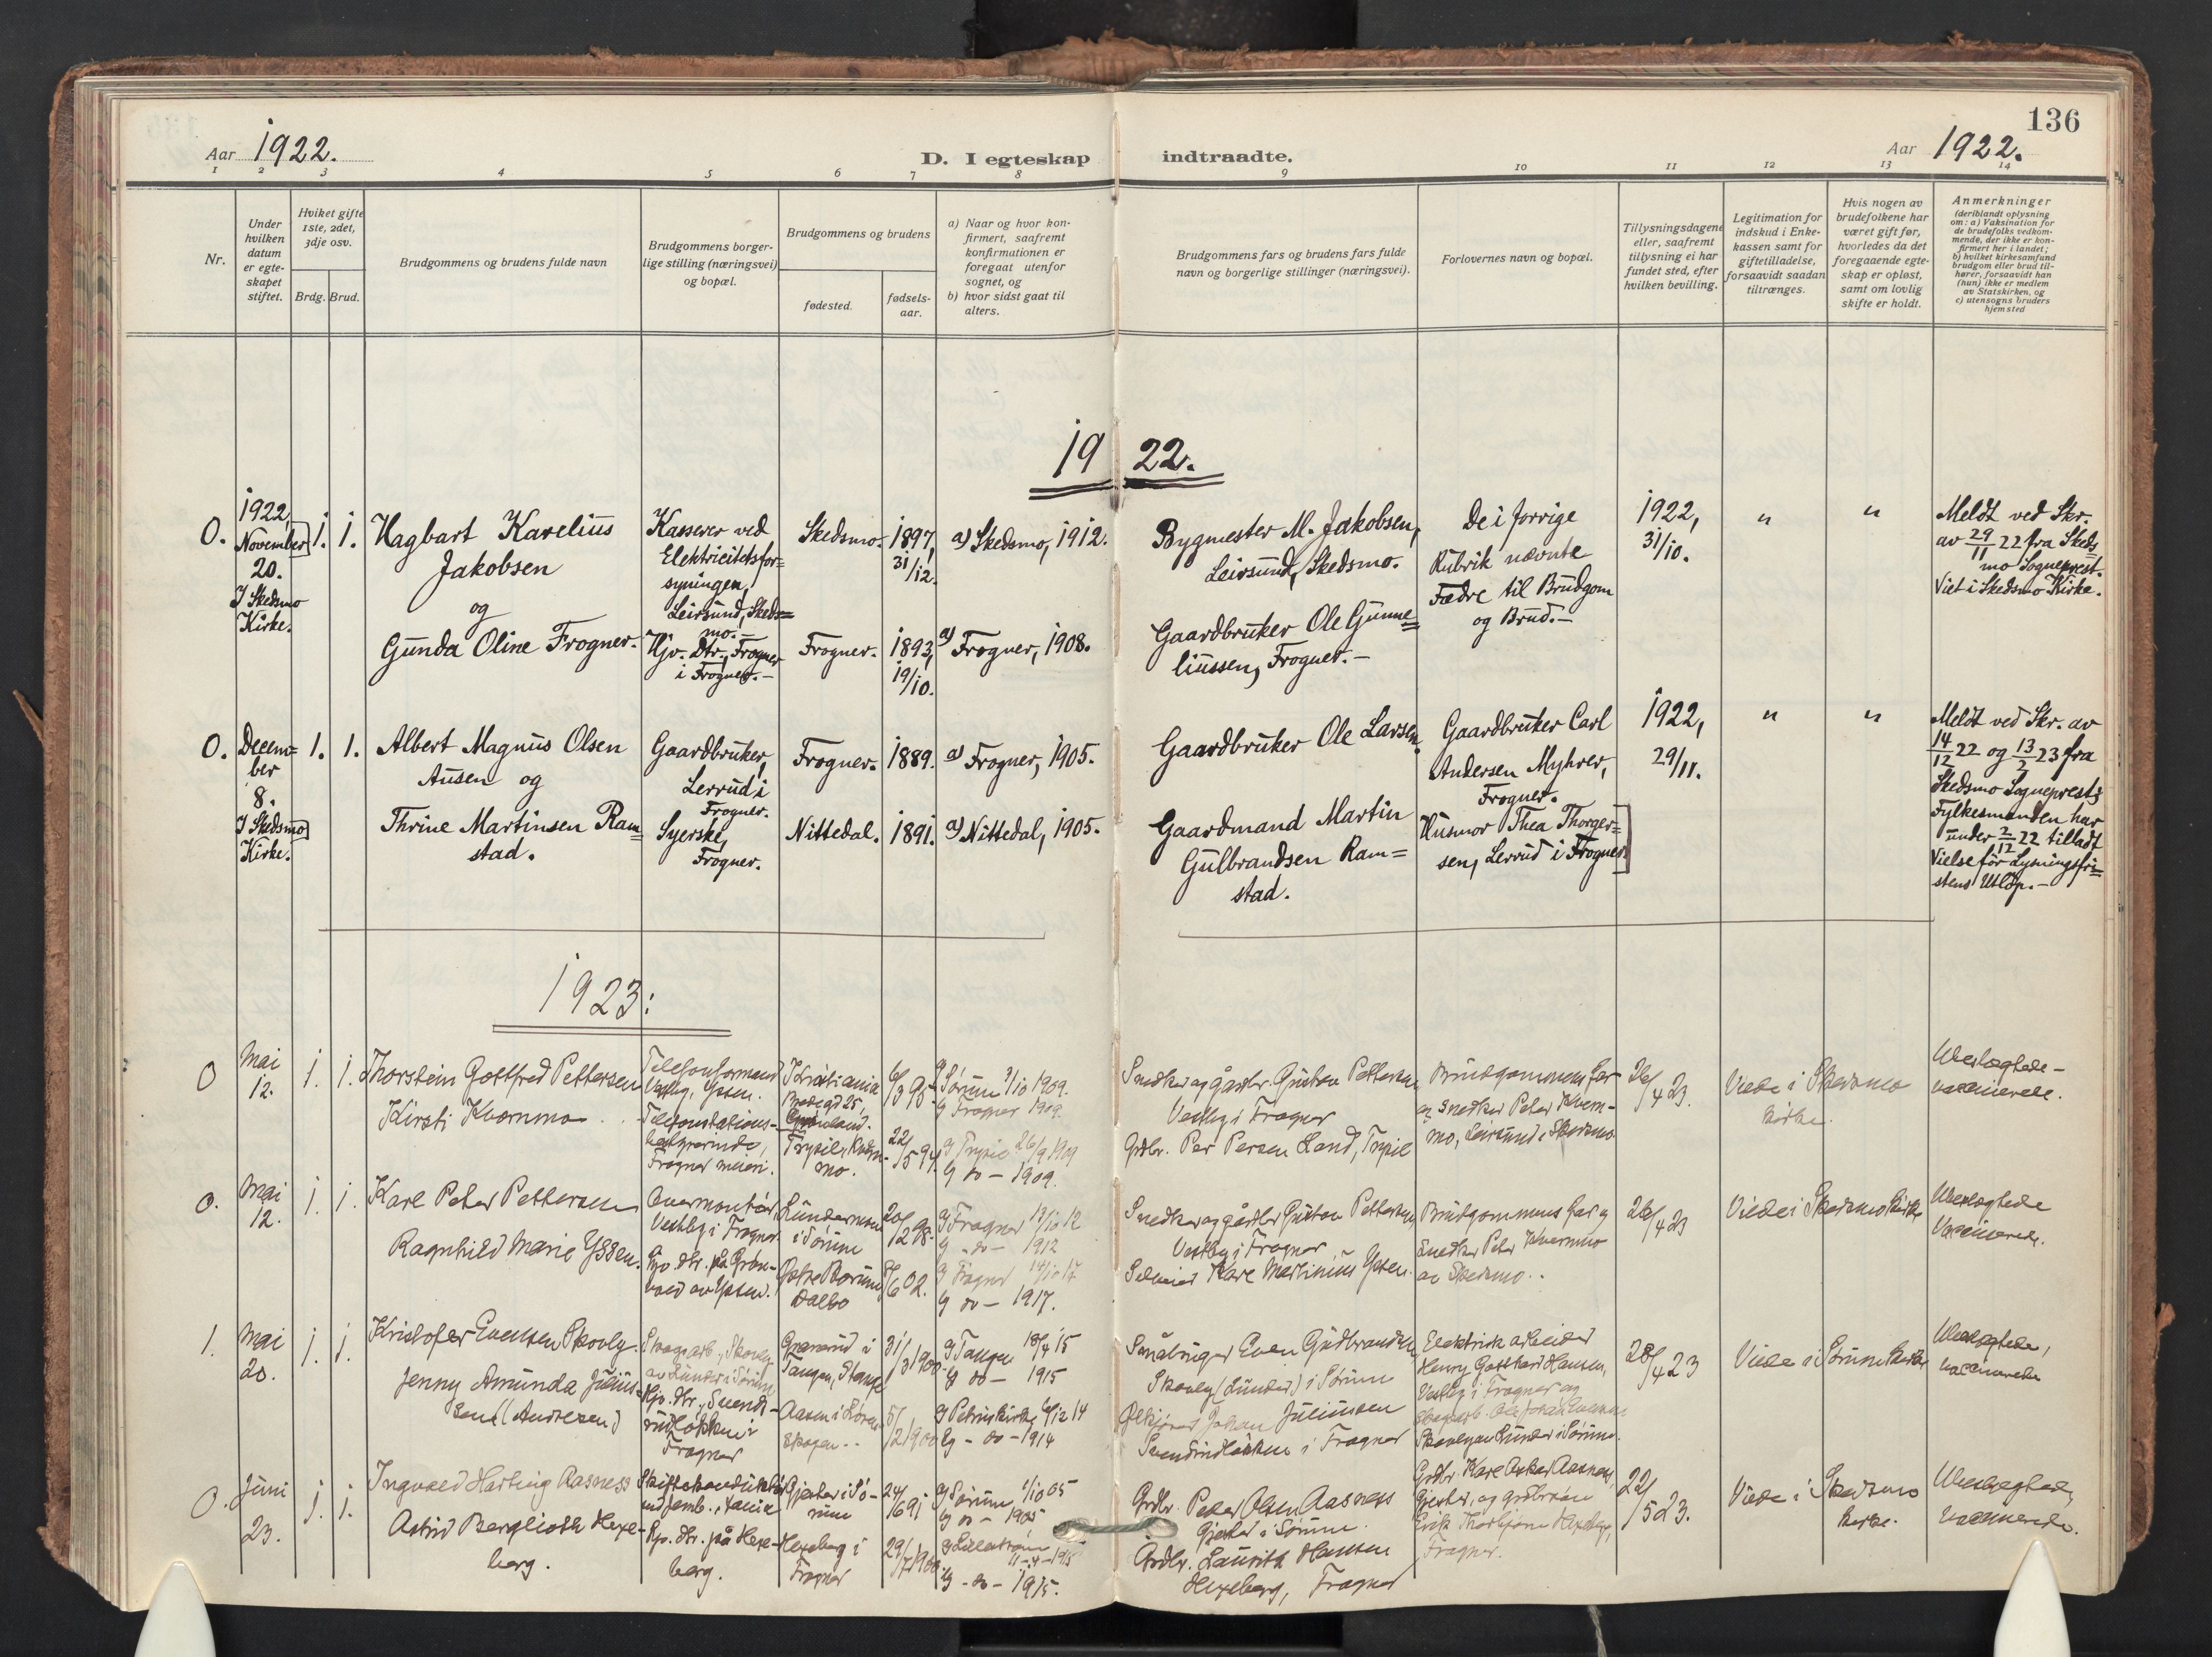 136
Aar 1922.
D. I egteskap indtraadte.
Aar 1922.
1 2 3 4 5 6 7 8 9 10 11 12 13 14
Nr.
Under
hvilken
datum
er egte-
skapet
stiftet.
Hviket gifte
1ste, 2det,
3dje osv.
Brdg. Brud.
Brudgommens og brudens fulde navn
Brudgommens borger-
lige stilling (næringsvei)
og bopæl.
Brudgommens og brudens
fødested.
fødsels-
aar.
a) Naar og hvor kon-
firmert, saafremt
konfirmationen er
foregaat utenfor
sognet, og
b) hvor sidst gaat til
alters.
Brudgommens fars og brudens fars fulde
navn og borgerlige stillinger (næringsvei).
Forlovernes navn og bopæl.
Tillysningsdagene
eller, saafremt
tillysning ei har
fundet sted, efter
hvilken bevilling.
Legitimation for
indskud i Enke-
kassen samt for
giftetilladelse,
forsaavidt saadan
tiltrænges.
Hvis nogen av
brudefolkene har
været gift før,
hvorledes da det
foregaaende egte-
skap er opløst,
samt om lovlig
skifte er holdt.
Anmerkninger
(deriblandt oplysning
om: a) Vaksination for
de brudefolks vedkom-
mende, der ikke er kon-
firmert her i landet;
b) hvilket kirkesamfund
brudgom eller brud til-
hører, forsaavidt han
(hun) ikke er medlem
av Statskirken, og
c) utensogns bruders
hjemsted
1922.
0.
1922,
November
20.
I Skedsmo
Kirke.
1. 1.
Hagbart Karelius
Jakobsen
og
Gunda Oline Frogner.
Kasserer ved
Elektricitetsfor=
syningen,
Leirsund, Skeds=
mo.-
Hjv. Dtr., Frogner
i Frogner.-
Skedsmo.
Frogner.
1897,
31/12.
1893,
19/10.
a) Skedsmo, 1912.
a) Frogner, 1908.
Bygmester M. Jakobsen,
Leirsund, Skedsmo.
Gaardbruker Ole Gunne=
liussen, Frogner.-
De i forrige
Rubrik nævnte
Fædre til Brudgom
og Brud.-
1922,
31/10.
"
"
Meldt ved Skr.
av 29/11 22 fra Skeds
mo Sogneprest.
Viet i Skedsmo Kirke.
0.
Decem=
ber
8.
I Skedsmo
Kirke.
1. 1.
Albert Magnus Olsen
Ausen og
Thrine Martinsen Ram=
stad.
Gaardbruker,
Lerrud i
Frogner.
Syerske,
Frogner.
Frogner.
Nittedal.
1889.
1891.
a) Frogner, 1905.
a) Nittedal, 1905.
Gaardbruker Ole Larsen.
Gaardmand Martin
Gulbrandsen Ram=
stad.
Gaardbruker Carl
Andersen Myhrer,
Frogner.
Husmor Thea Thorger=
sen, Lerrud i Frogner
1922,
29/11.
"
"
Meldt ved Skr. av
14/12 22 og 13/2 23 fra
Skedsmo Sogneprest;
Fylkesmanden har
under 2/12 22 tilladt
Vielse før Lysningsfri=
stens Utløp.-
1923:
0
Mai
12.
1. 1.
Thorstein Gottfred Pettersen
Kirsti Kvernmo
Telefonformand
Vestby, Ysten.
Telefonstations-
bestyrerinde,
Frogner meieri.
Kristiania
Grønland.
Trysil, Kvern-
mo.
6/3 95
22/5 94
Sørum 3/10 1909.
Frogner 1909.
Trysil 26/9 1909
do - 1909.
Snedker og gårdbr. Gustav Pettersen
Vestby i Frogner
Grdbr. Per Persen Lond, Trysil
Brudgommens far
og snedker Peter Kvern-
mo, Leirsund i Skedsmo
26/4 23.
Viede i Skedsmo
kirke.
Ubeslegtede -
vaccinerede.
0.
Mai
12.
1. 1.
Karl Peter Pettersen
Ragnhild Marie Yssen.
Overmontør,
Vestby i Frogner
Hjv. dtr. på Grøn-
vold av Ysten.
i Sørum
Østre Bærum
Dalbo
20/2 98.
8/6 02.
Frogner 13/10 12
do - 1912
Frogner 14/10 17
do - 1917.
Snedker og gårdbr Gustav Pettersen
Vestby i Frogner
Karl Martinius Ysten.
Brudgommens far og
Snedker Peter Kvernmo
av Skedsmo..
26/4 23
Viede i Skedsmo kirke
Ubeslegtede
Vaccinerede.
1.
Mai
20.
1. 1.
Kristofer Evensen Skovly
Jenny Amunda Julius-
sen (Andresen)
Skogsarb., Skovly
av Lunder i Sørum
Hjv. dtr., Svends-
rudløkken i
Frogner
i
Tangen, Stange
Aasen i
Skogen..
31/3 1900
5/2 1900
Tangen 18/4 15
do - 1915
Petruskirke 6/12 14
do - 1914
Småbruger Even Gudbrandsen
Skovly (Lunder) i Sørum
Johan Juliussen
Svendsrudløkken i Frogner
Elektrisk arbeider
Henry Gotthard Hansen,
Vestby i Frogner og
Skogsarb. Ole Johan Evensen
Skovly av Lunder i Sørum.
28/4 23
Viede i Sørum kirke
Ubeslegtede,
vaccinerede
0.
Juni
23.
1. 1.
Ingvald Harting Aasness
Astrid Berglioth Hexe-
berg.
Skiftekonduktør
ved jernb.,
Hjv. dtr. på Hexe-
berg.
Gjester i Sø-
rum
Hexeberg i
Frogner
24/6 91
29/7 1900
Sørum 1/10 05
do - 1905
Lillestrøm
11-4-1915
do - 1915.
Grdbr. Peder Olsen Aasness
Gjester i Sørum.
Grdbr. Lauritz Hansen
Hexeberg, Frogner
Grdbr. Karl Oskar Aasness,
Gjester, og grdbrsøn
Erik Thorbjørn Hexeberg,
Frogner.
22/5 23.
Viede i Skedsmo
kirke.
Ubeslegtede,
Vaccinerede.